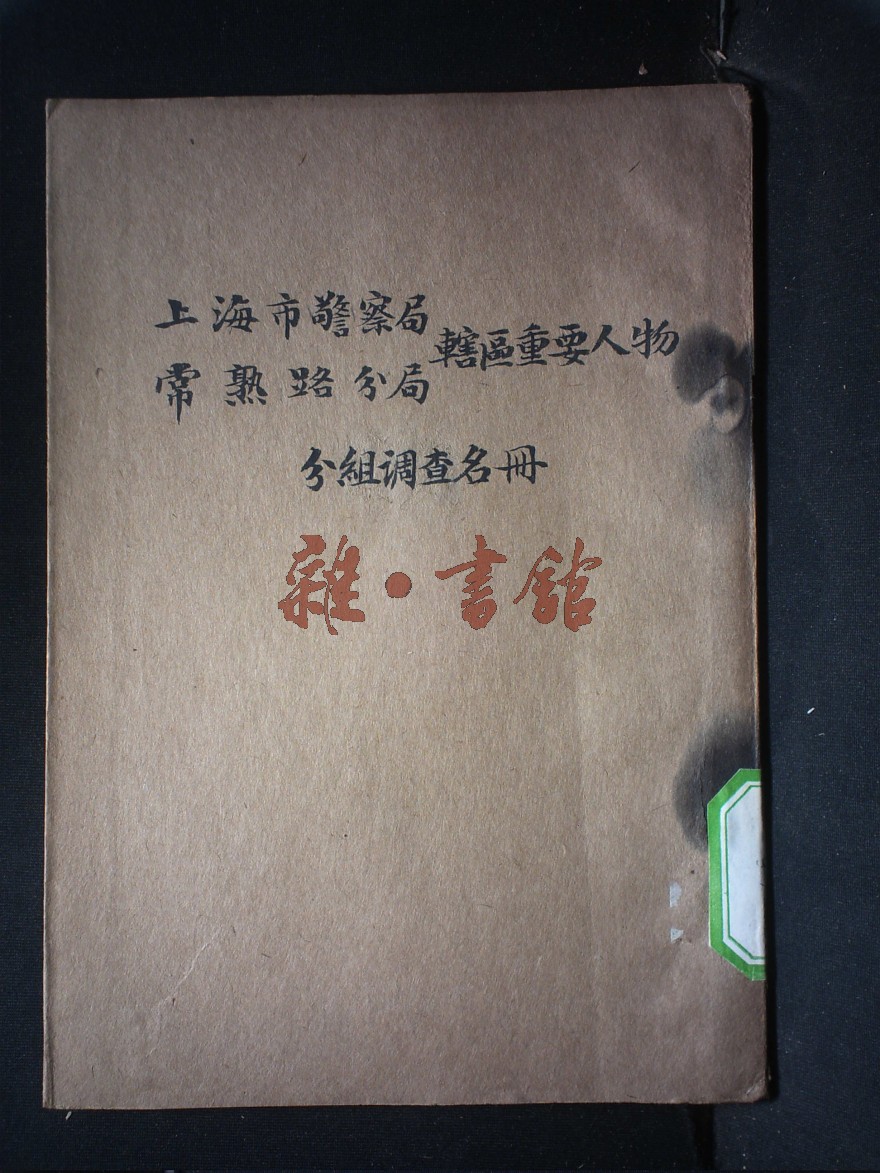 上海市警察局
常熟路分局
轄區重要人物
分組调查名冊
雜·書館